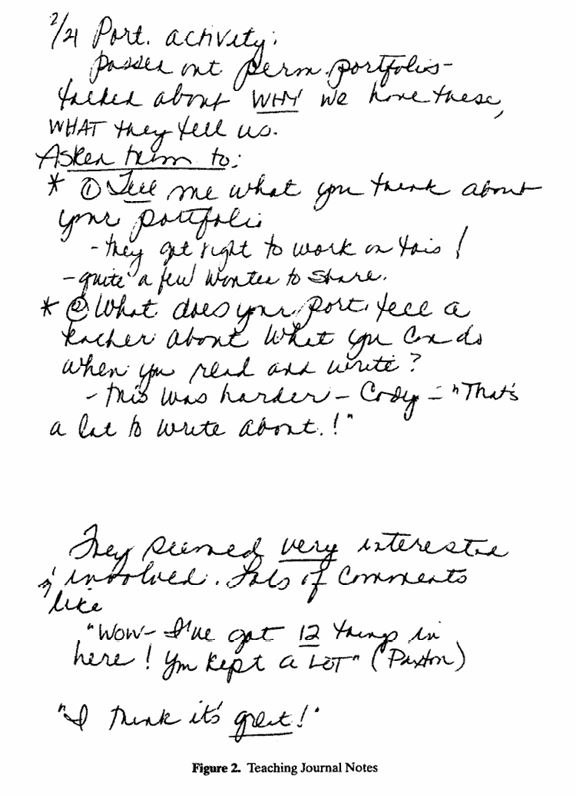 2/21 Port. activity:
passed out perm. portfolios-
talked about WHY we have these,
WHAT they tell us.
Asked them to:
* ① Tell me what you think about
your portfolio
- they got right to work on this!
- quite a few wanted to share.
* ② What does your port. tell a
teacher about what you can do
when you read and write?
- this was harder - Cody - "That's
a lot to write about.!"
They seemed very interested
& involved. Lots of comments
like
"Wow- I've got 12 things in
here! You kept a LOT" (Paxton)
"I think it's great!"
Figure 2. Teaching Journal Notes